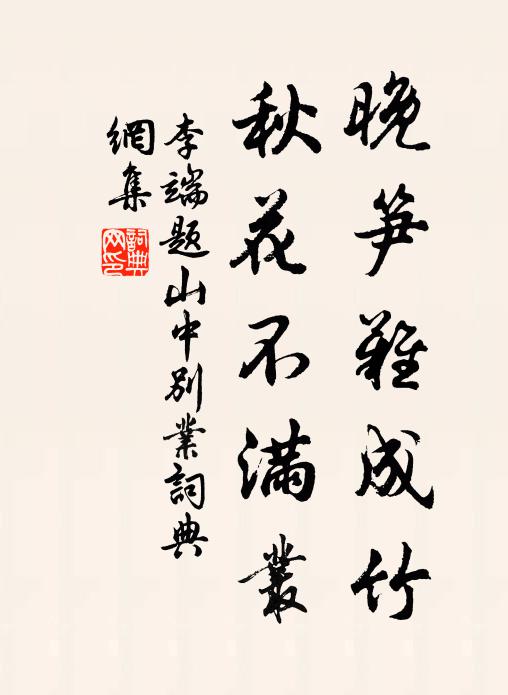 晚笋難成竹
秋花不满叢
李端题山中别業詞典
網集
詞典网印